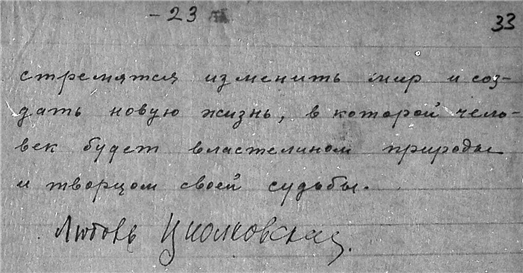 -23
33
стремятся изменить мир и соз-
дать новую жизнь, в которой чело-
век будет властелином природы
и творцом своей судьбы.
Любовь Циолковская.